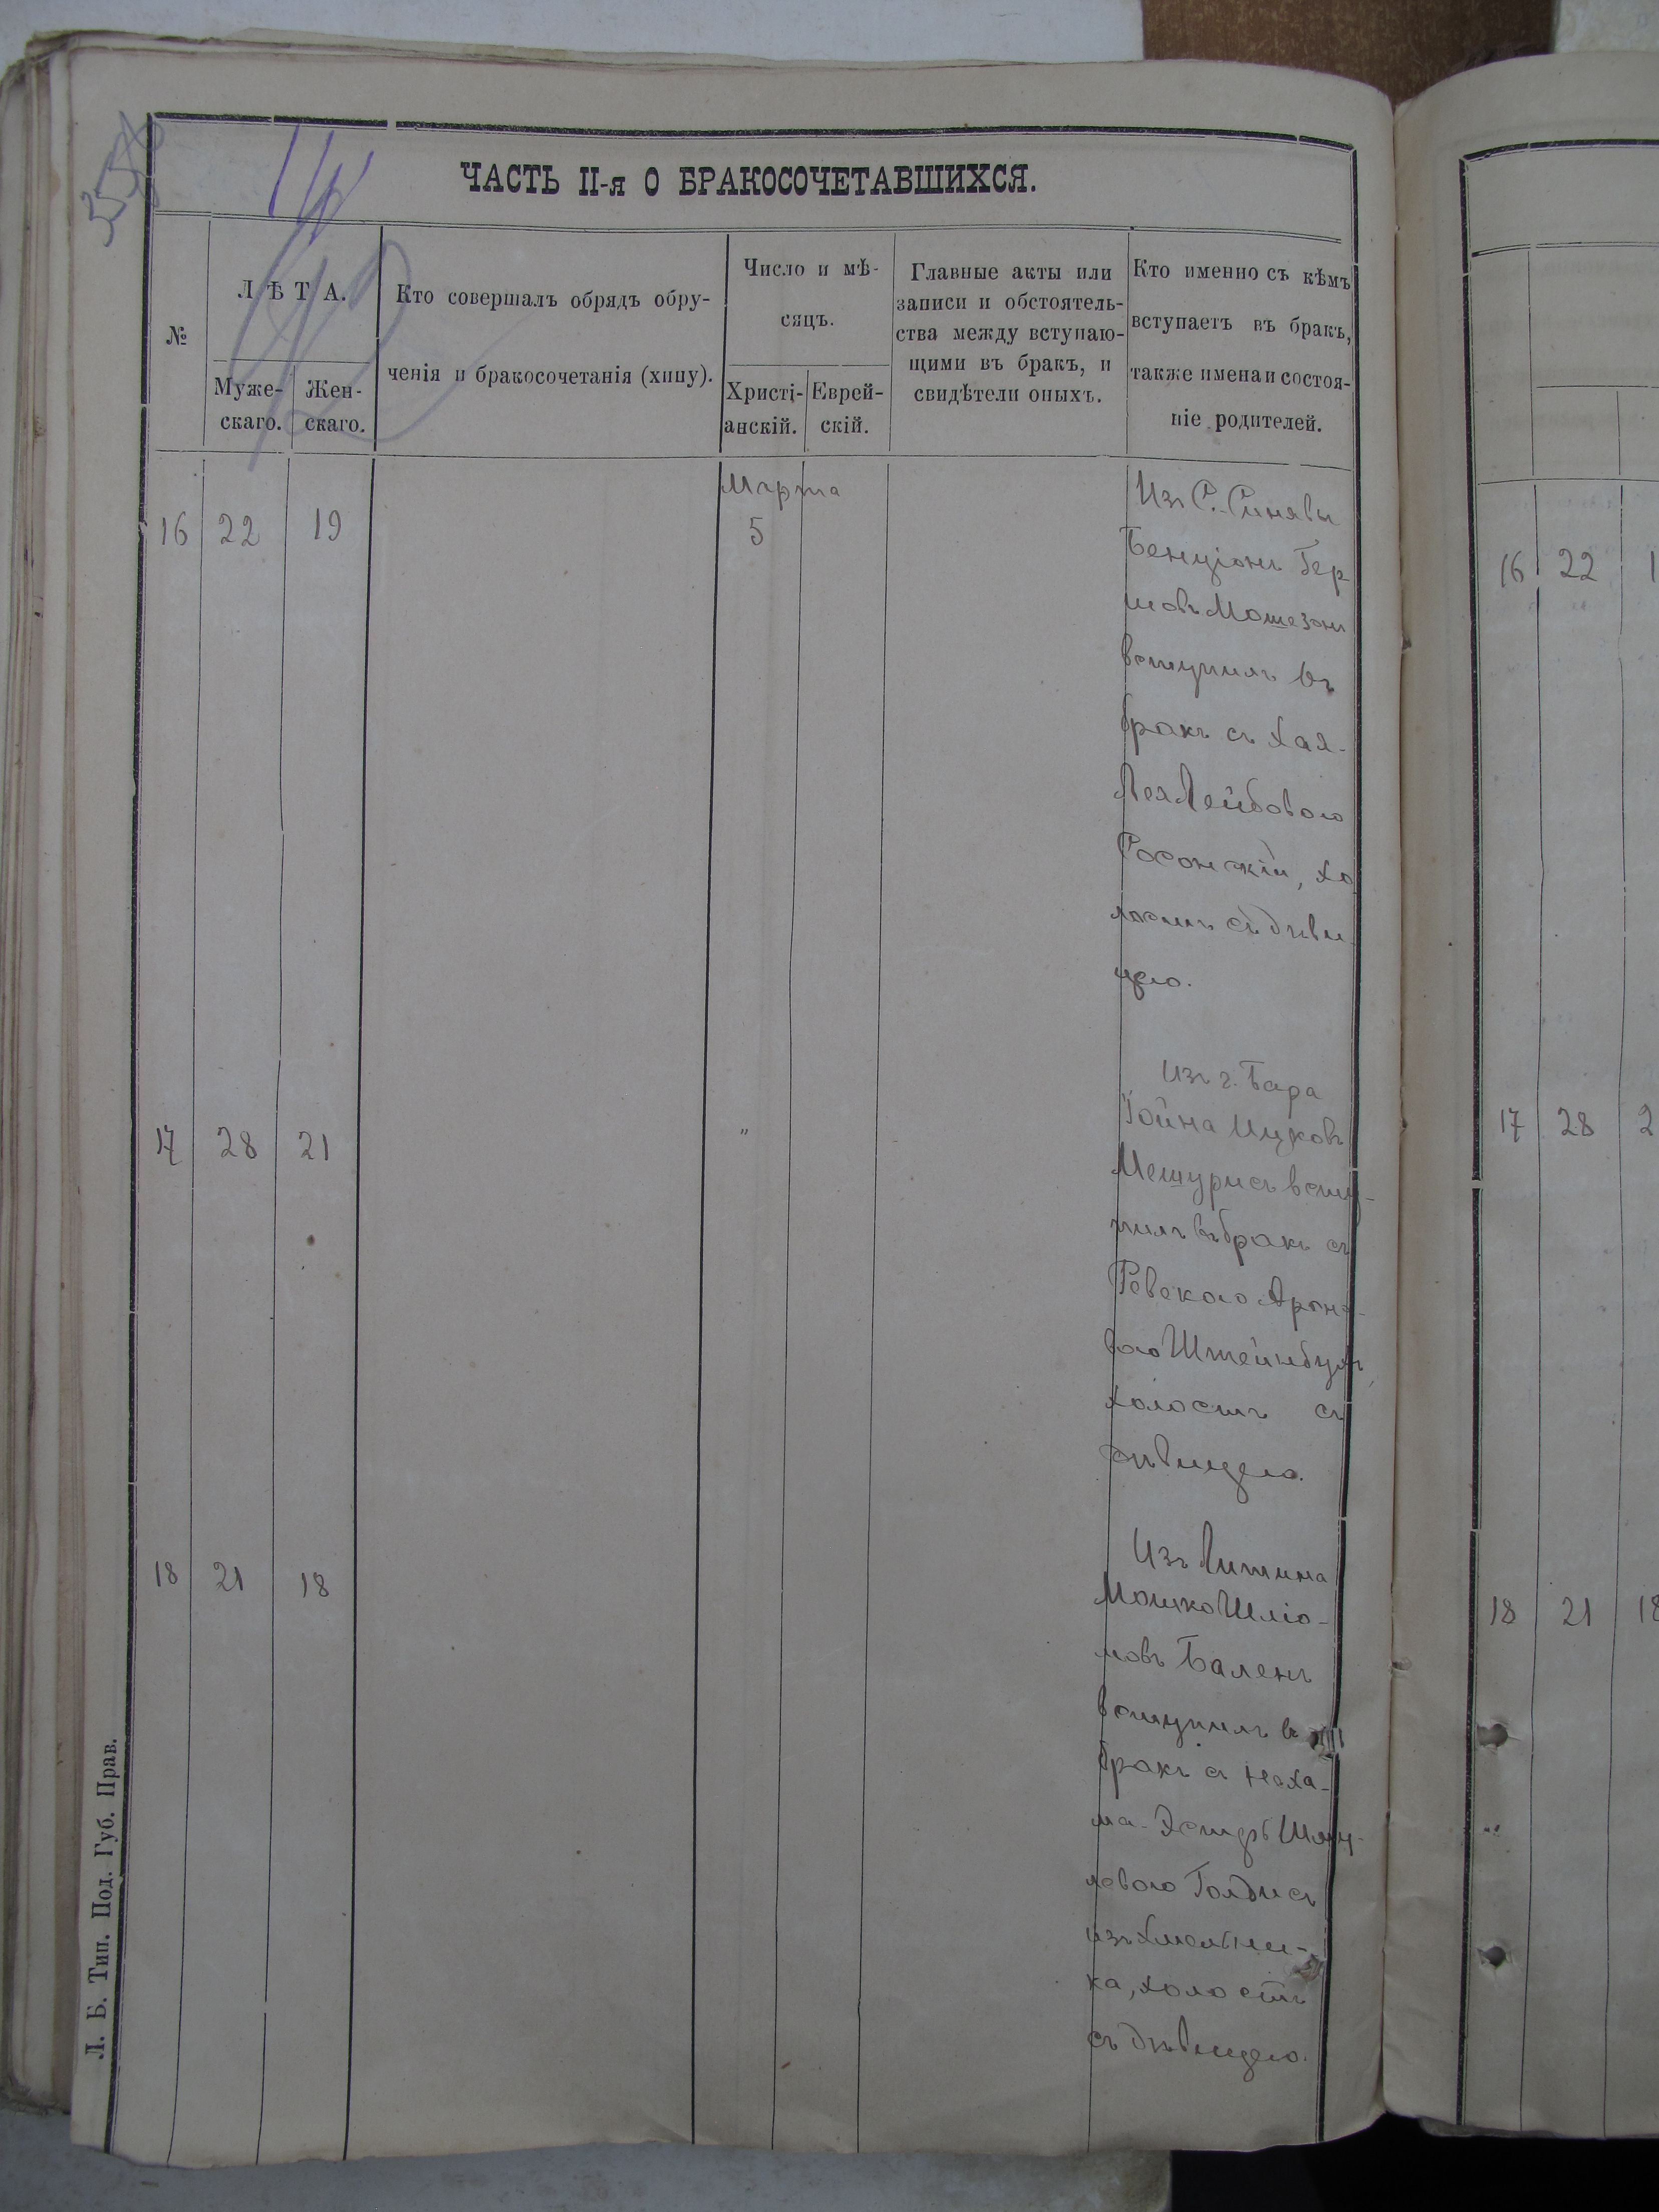 ЧАСТЬ II-я О БРАКОСОЧЕТАВШИХСЯ.
№
ЛѢТА.
Муже-
скаго.
Жен-
скаго.
Кто совершалъ обрядъ обру-
ченія и бракосочетанія (хипу).
Число и мѣ-
сяцъ.
Христі-
анскій.
Еврей-
скій.
Главные акты или
записи и обстоятель-
ства между вступаю-
щими въ бракъ, и
свидѣтели оныхъ.
Кто именно съ кѣмъ
вступаетъ въ бракъ,
также имена и состоя-
ніе родителей.
16 22 19
Марта
5
Изъ С. Синявы
Бенціонъ Гер
шовъ Мошезонъ
вступилъ въ
бракъ съ Хая-
Лея Лейбовою
Сосонскій, хо
лостъ съ дѣви
цею.
17 28 21 "
Изъ г. Бара
Іойна Ицковъ
Мешурисъ всту-
пилъ въ бракъ съ
Ревекою Ароно-
вою Штейнбукъ,
холостъ съ
дѣвицею.
18 21 18
Изъ Литина
Мошко Шліо-
мовъ Баленъ
вступилъ въ
бракъ съ Неха-
ма-Эстеръ Шму-
левою Голдисъ
изъ Хмельни-
ка, холостъ
съ дѣвицею.
Л. Б. Тип. Под. Губ. Прав.
16 22 1
17 28 2
18 21 18